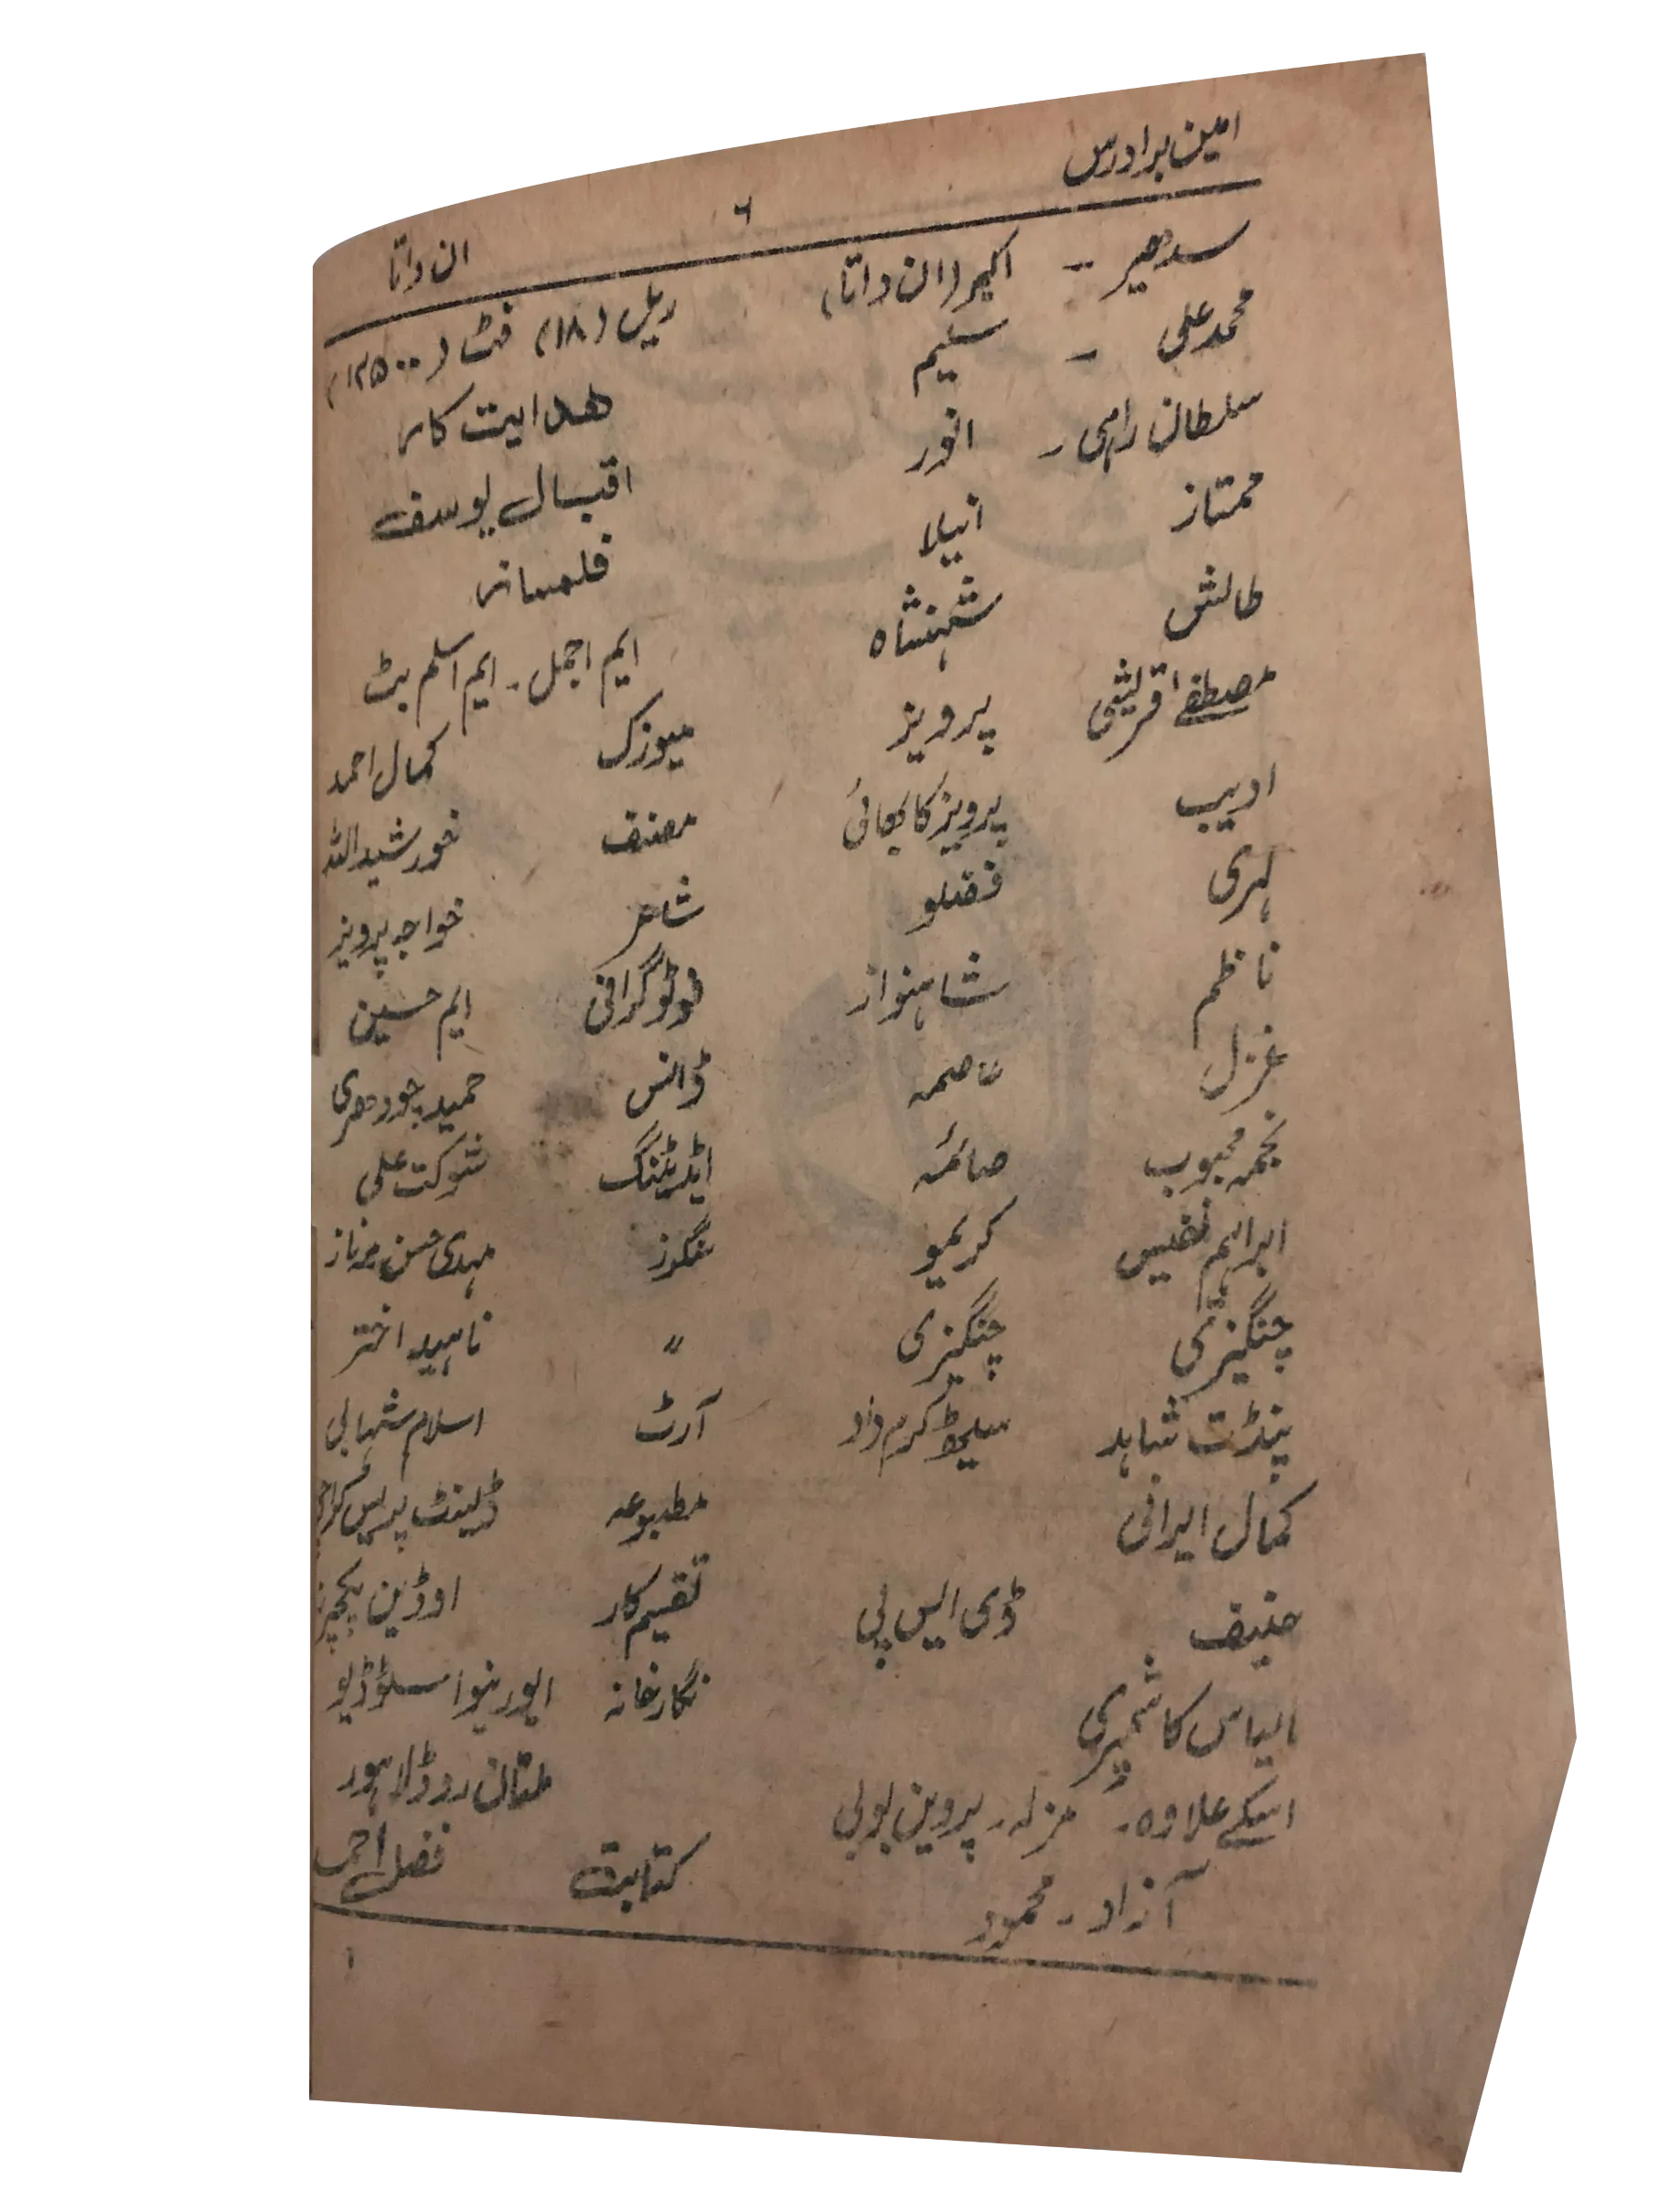 امین برادرس ۶ ان داتا
سدھیر - اکبر (ان داتا) ریل (۱۸) فٹ (۱۲۵۰۰)
محمد علی - سلیم ھدایت کار
سلطان راہی - انور اقبال یوسف
ممتاز انیلا فلمساز
طالش شہنشاہ ایم اجمل - ایم اسلم بٹ
مصطفےٰ قریشی پرویز میوزک کمال احمد
ادیب پرویز کا بھائی مصنف خورشید اللہ
لہری فضلو شاعر خواجہ پرویز
ناظم شاہنواز فوٹوگرافی ایم حسین
غزل عاصمہ ڈانس حمید چودھری
نجمہ محبوب صائمہ ایڈیٹنگ شوکت علی
ابراہیم نفیس کریمو سنگرز مہدی حسن مہناز
چنگیزی چنگیزی " ناہید اختر
پنڈت شاہد سیٹھ کرم داد آرٹ اسلام شہابی
کمال ایرانی مطبوعہ ڈیلینٹ پریس کراچی
حنیف ڈی ایس پی تقسیم کار اوڈین پکچرز
الیاس کاشمیری نگارخانہ ایورنیو اسٹوڈیو
ملتان روڈ لاہور
اسکے علاوہ - مزلہ - پروین بوبی
آزاد - محمود کتابت فضل احمد